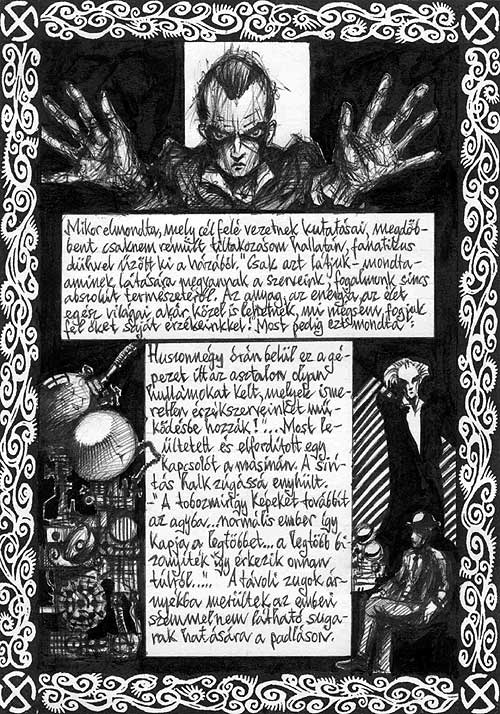 Mikor elmondta, mely cél felé vezetnek kutatásai, megdöb-
bent csaknem rémült tiltakozásom hallatán, fanatikus
dühvel űzött ki a házából. "Csak azt látjuk - mondta -
aminek látására megvannak a szerveink, fogalmunk sincs
abszolút természetéről. Az anyag, az energia, az élet
egész világai akár közel is lehetnek, mi mégsem fogjuk
fel őket saját érzékeinkkel! Most pedig ezt mondta:
Huszonnégy órán belül ez a gé-
pezet itt az asztalon olyan
hullámokat kelt, melyek isme-
retlen érzékszerveinket mű-
ködésbe hozzák!"...Most le-
ültetett és elfordított egy
kapcsolót a masinán. A siví-
tás halk zúgássá enyhült.
- "A tobozmirigy képeket továbbít
az agyba...normális ember így
kapja a legtöbbet... a legtöbb bi-
zonyíték így érkezik onnan
túlról....." A távoli zugok ár-
nyékba merültek az emberi
szemmel nem látható suga-
rak hatására a padláson.